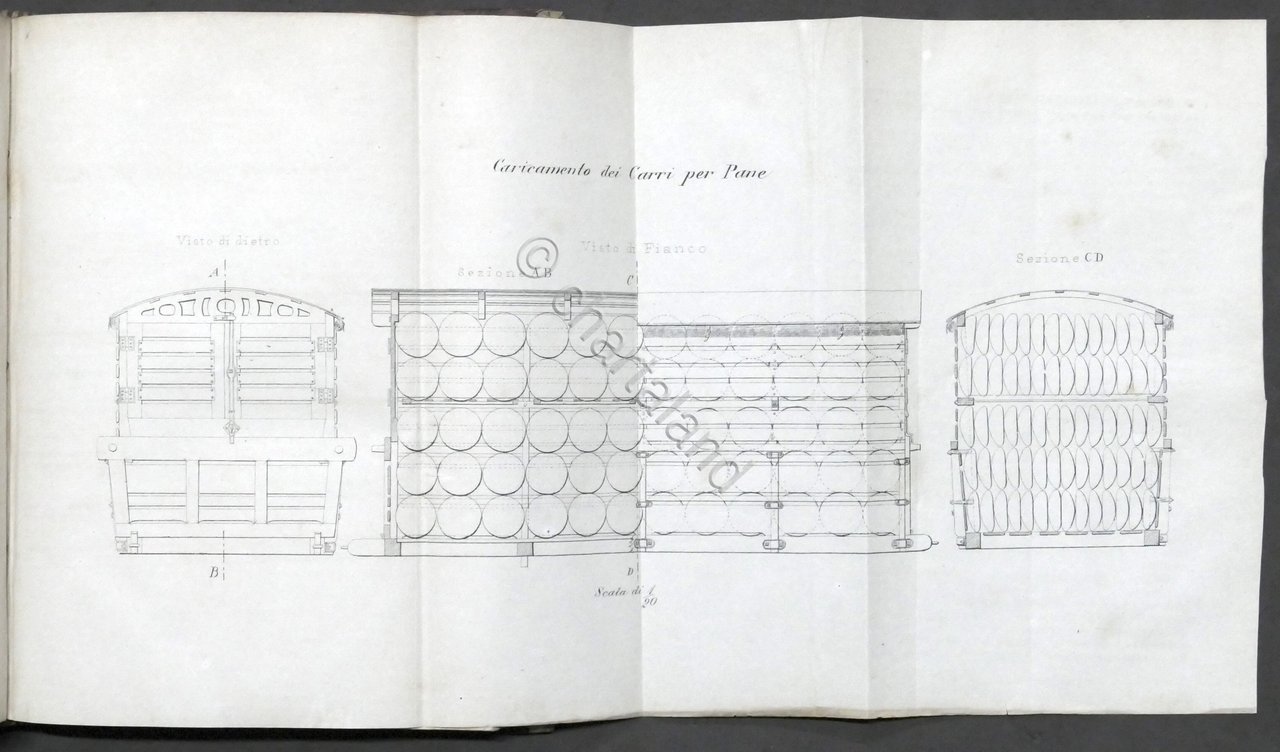 Caricamento dei Carri per Pane
Visto di dietro
Visto di Fianco
Sezione AB
Sezione CD
A
C
B
D
Scala di 1/90
© chartaland